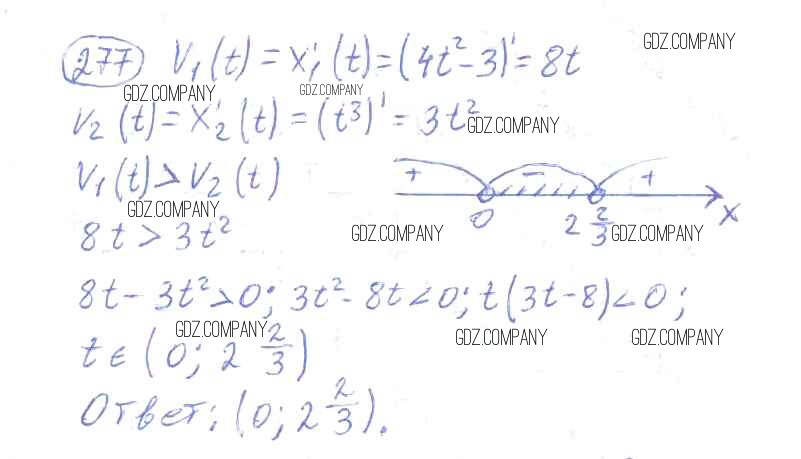 277 V₁(t) = X'₁(t) = (4t² - 3)' = 8t
GDZ.COMPANY
GDZ.COMPANY GDZ.COMPANY
V₂(t) = X'₂(t) = (t³)' = 3t²
GDZ.COMPANY
V₁(t) > V₂(t)
+ - +
GDZ.COMPANY
0 2 2/3 X
8t > 3t²
GDZ.COMPANY GDZ.COMPANY
8t - 3t² > 0; 3t² - 8t < 0; t(3t - 8) < 0;
GDZ.COMPANY GDZ.COMPANY GDZ.COMPANY
t ∈ (0; 2 2/3)
Ответ: (0; 2 2/3).